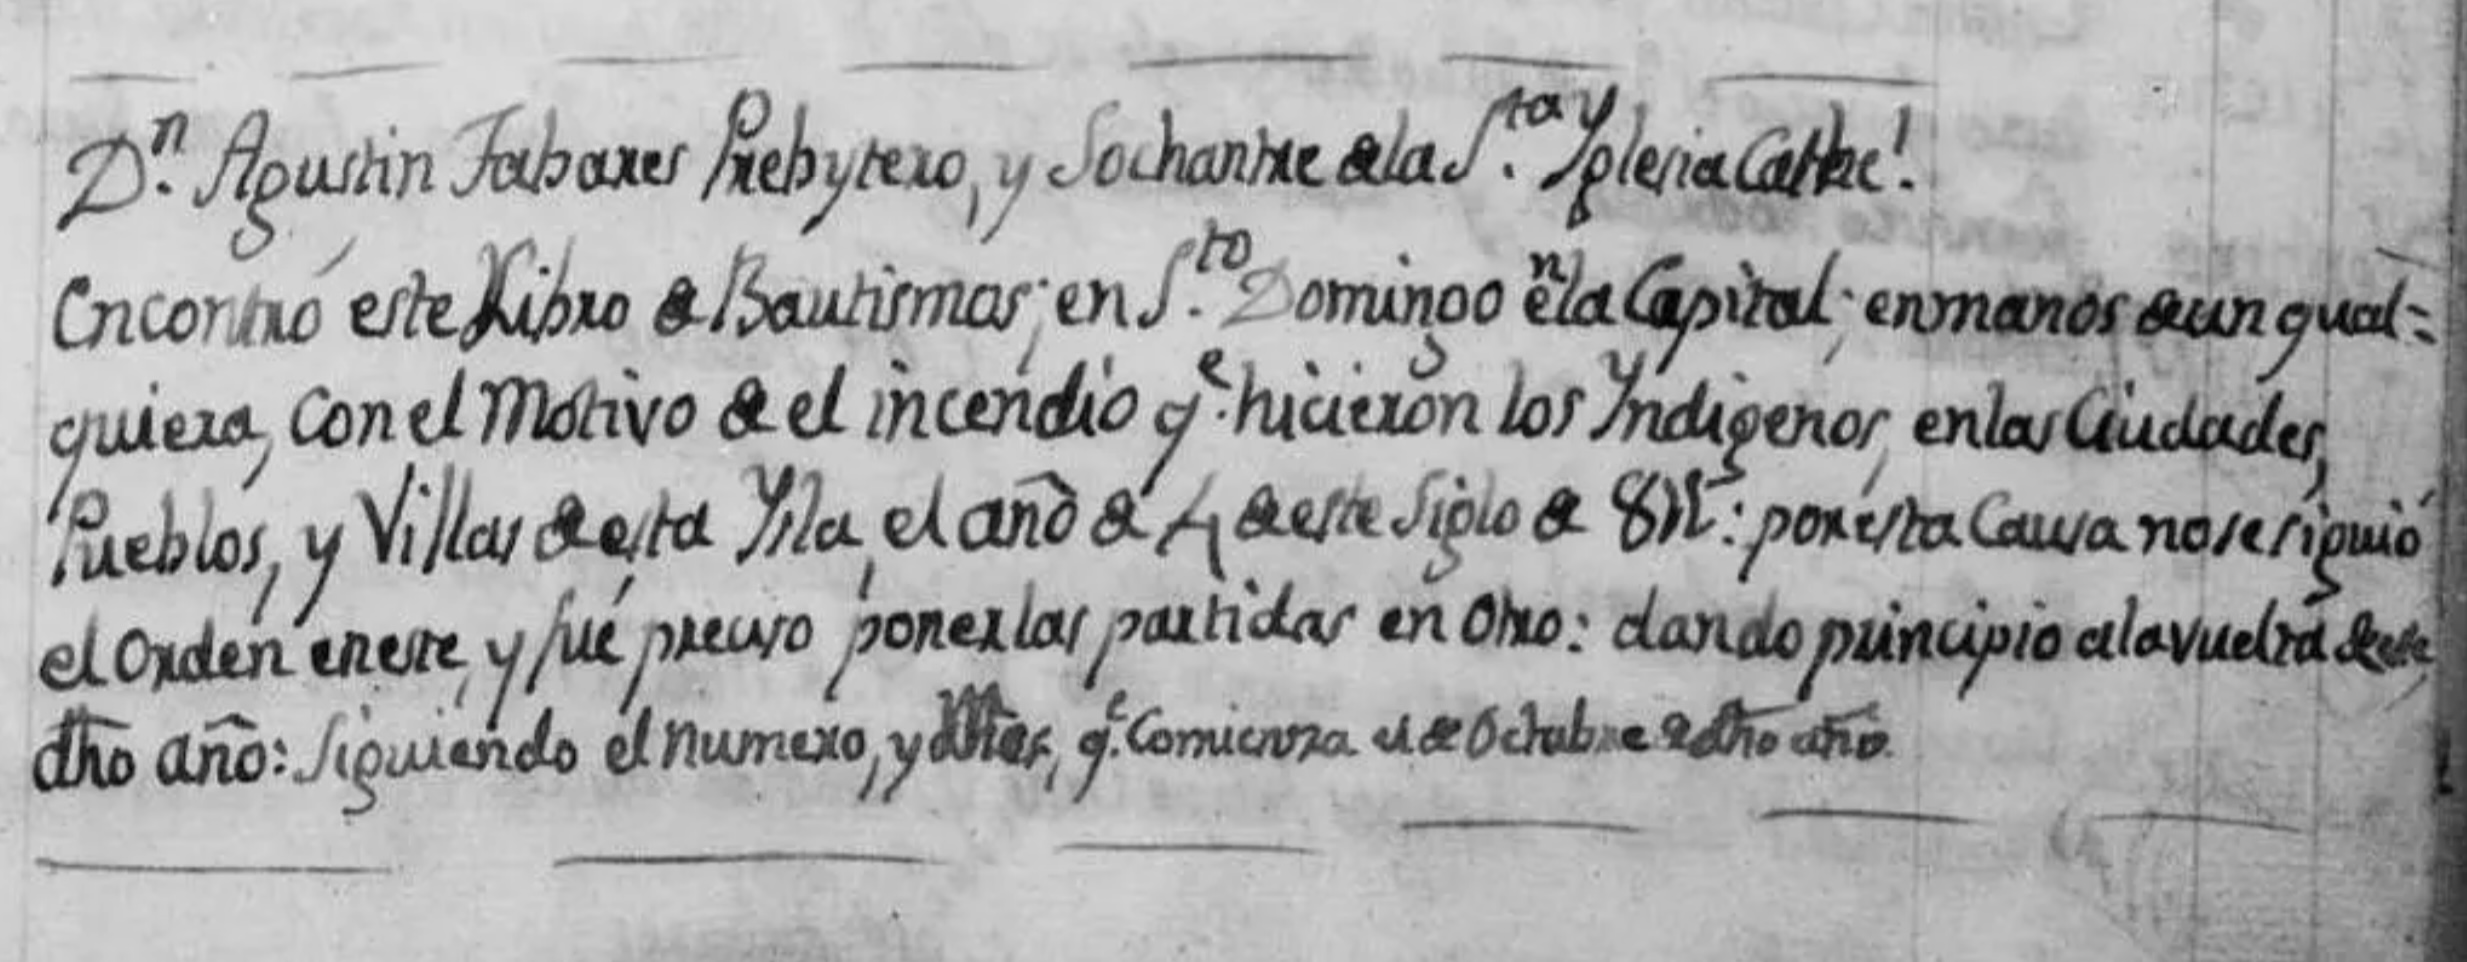 D.n Agustin Tabares Prebytero, y Sochantre de la S.ta Yglesia Cathe.l
Encontró este Libro de Bautismos; en S.to Domingo en la Capital; en manos de un qual=
quiera, Con el Motivo de el incendio q.e hicieron los Yndigenos, en las Ciudades,
Pueblos, y Villas de esta Ysla, el año de 4 de este Siglo de 8: por esta Causa no se siguió
el Orden en este, y fué preciso poner las partidas en Otro: dando principio a la vuelta de este
dho año: Siguiendo el numero, y q.e Comienza de Octubre de dho año.